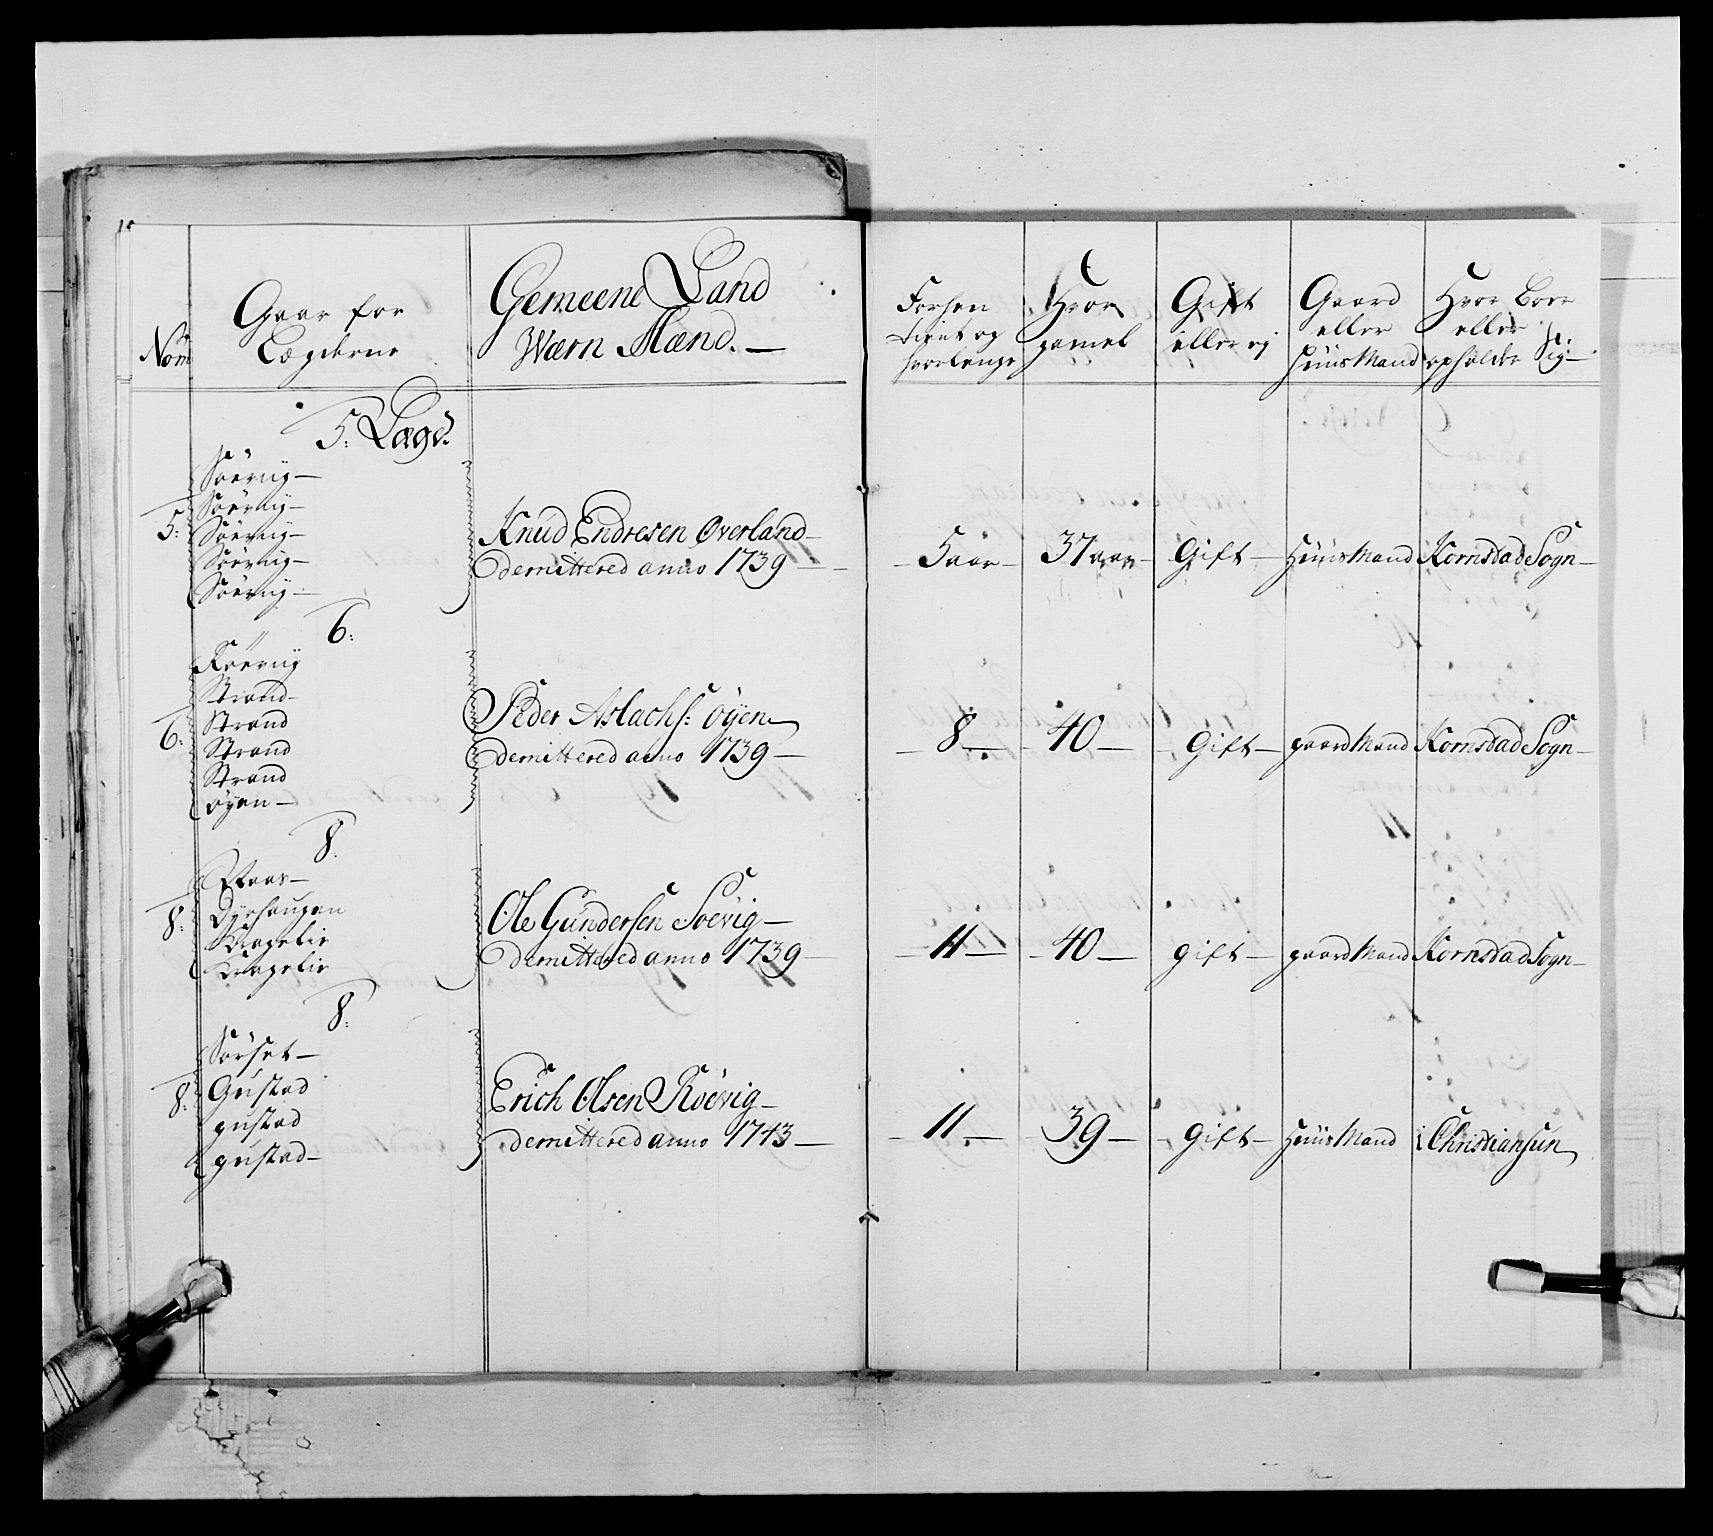 Nom
Gaar for
Lægderne
Gemeene Land
Wærn Mænd. —
Forhen
tient og
hvorlenge
Hvor
gamel
Gift
eller ej
Gaard
eller
Huusmand
Hvor boer
eller
opholder Sig —
5: Lægd.
Söevig —
Söevig —
5: Söevig —
Söevig —
Söevig —
Knud Endresen Øverland —
demittered anno 1739 —
5 aar — 37 aar — Gift — Huusmand Kornstad Sogn —
6:
Röevig
Strand —
6: Strand
Strand
Strand
Øyen —
Peder Aslachs: Øyen
demittered anno 1739 —
8 — 40 — Gift — gaardmand Kornstad Sogn —
8.
Staas —
8: Dyrhaugen
Ole Gundersen Soevig —
demittered anno 1739 —
11 — 40 — gift — gaardmand Kornstad Sogn —
8:
Sörset —
8: Gustad
gustad
gustad —
Erich Olsen Röevig —
demittered anno 1743 —
11 — 39 — gift — Huusmand i Christiansun